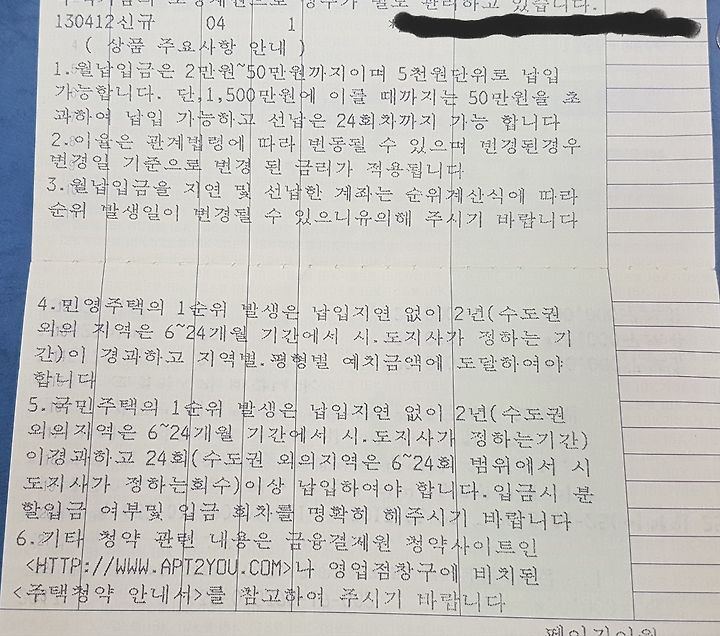 별도 관리하고 있습니다.
130412신규 04 1
( 상품 주요사항 안내 )
1.월납입금은 2만원~50만원까지이며 5천원단위로 납입
가능합니다. 단,1,500만원에 이를 때까지는 50만원을 초
과하여 납입 가능하고 선납은 24회차까지 가능 합니다
2.이율은 관계법령에 따라 변동될 수 있으며 변경된경우
변경일 기준으로 변경 된 금리가 적용됩니다
3.월납입금을 지연 및 선납한 계좌는 순위계산식에 따라
순위 발생일이 변경될 수 있으니유의해 주시기 바랍니다
4.민영주택의 1순위 발생은 납입지연 없이 2년(수도권
외의 지역은 6~24개월 기간에서 시.도지사가 정하는 기
간)이 경과하고 지역별.평형별 예치금액에 도달하여야
합니다
5.국민주택의 1순위 발생은 납입지연 없이 2년(수도권
외의지역은 6~24개월 기간에서 시.도지사가 정하는기간)
이경과하고 24회(수도권 외의지역은 6~24회 범위에서 시
도지사가 정하는회수)이상 납입하여야 합니다.입금시 분
할입금 여부및 입금 회차를 명확히 해주시기 바랍니다
6.기타 청약 관련 내용은 금융결제원 청약사이트인
<HTTP://WWW.APT2YOU.COM>나 영업점창구에 비치된
<주택청약 안내서>를 참고하여 주시기 바랍니다